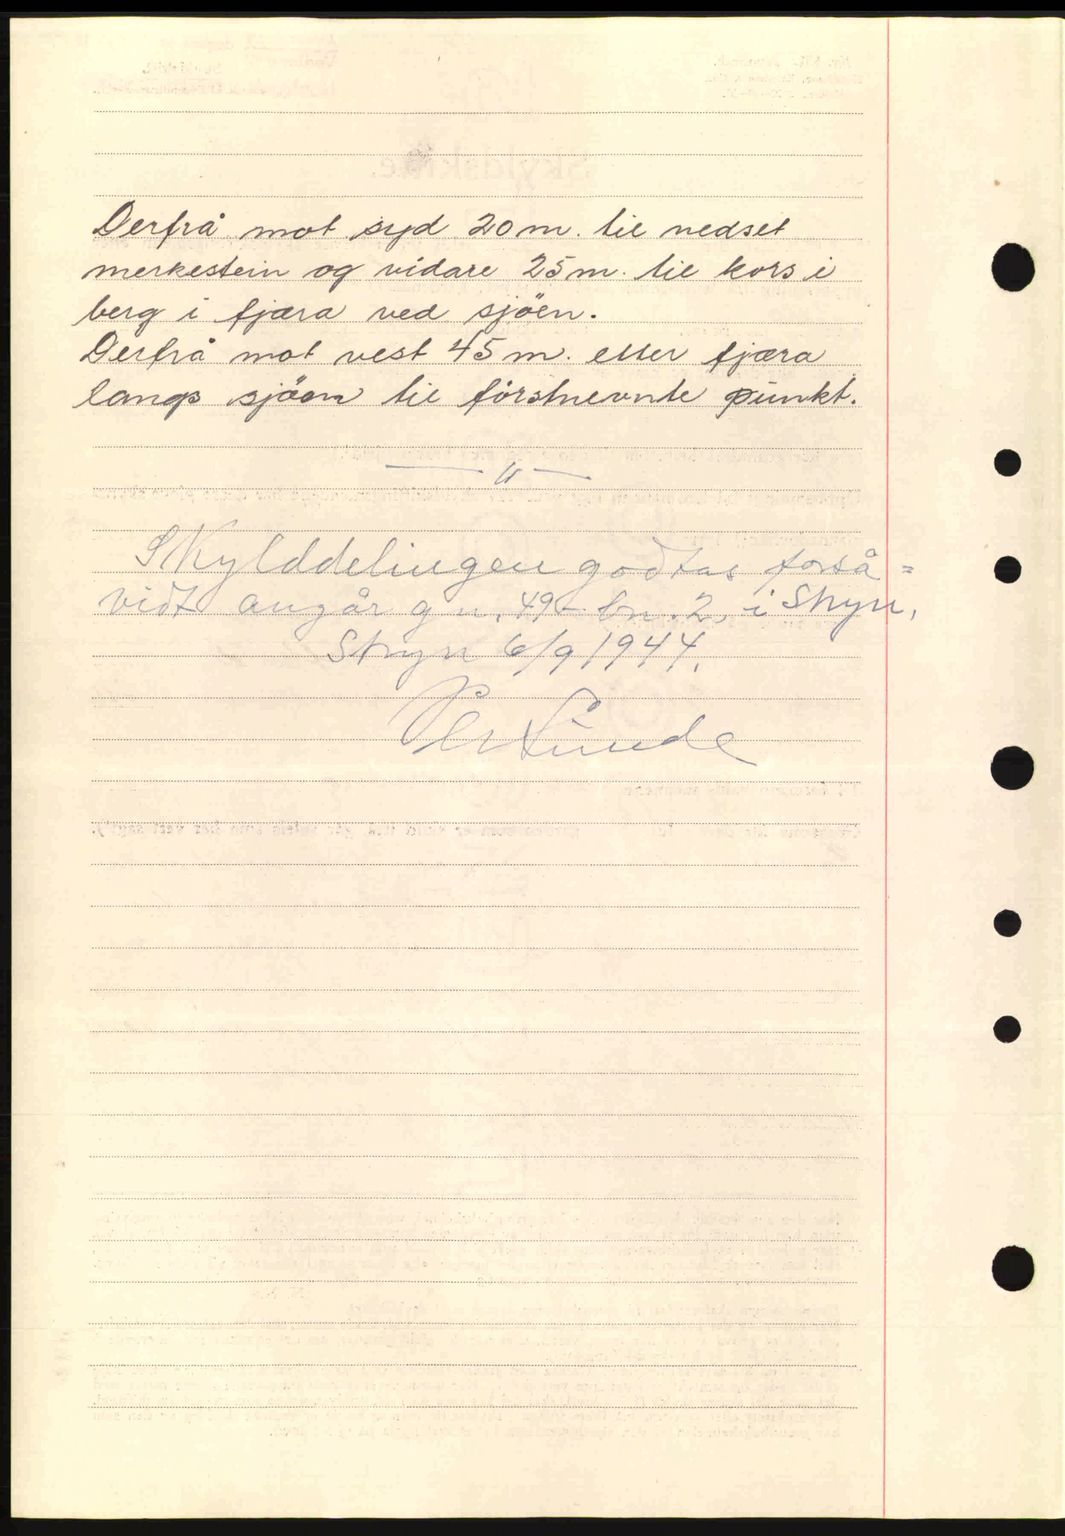 Derfrå mot syd 20 m. til nedset
merkestein og vidare 25 m. til kors i
berg i fjæra ved sjöen.
Derfrå mot vest 45 m. etter fjæra
langs sjöen til förstnevnte punkt.
Skylddelingen godtas forså=
vidt angår gn. 49 - bn. 2, i Stryn,
Stryn 6/9 1944.
Per Sunde